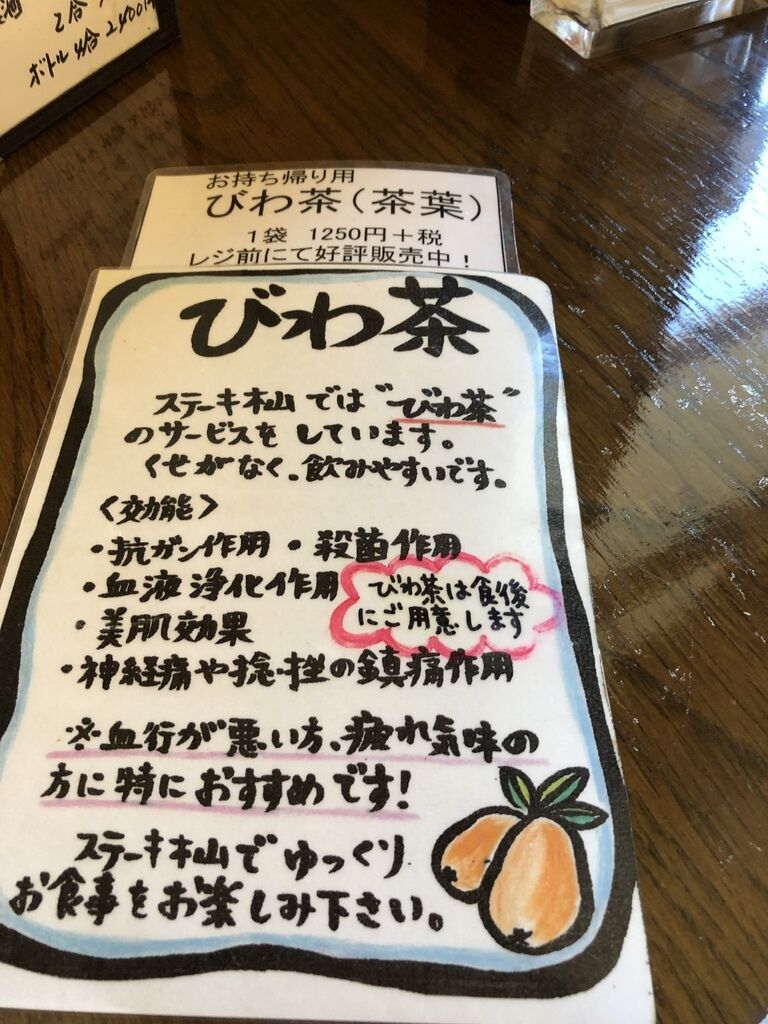 2合
ボトル 4合 2400
お持ち帰り用
びわ茶(茶葉)
1袋 1250円+税
レジ前にて好評販売中!
びわ茶
ステーキ本山では"びわ茶"
のサービスをしています。
くせがなく、飲みやすいです。
〈効能〉
・抗ガン作用 ・殺菌作用
・血液浄化作用
びわ茶は食後
にご用意します
・美肌効果
・神経痛や捻・挫の鎮痛作用
※血行が悪い方、疲れ気味の
方に特におすすめです!
ステーキ本山でゆっくり
お食事をお楽しみ下さい。